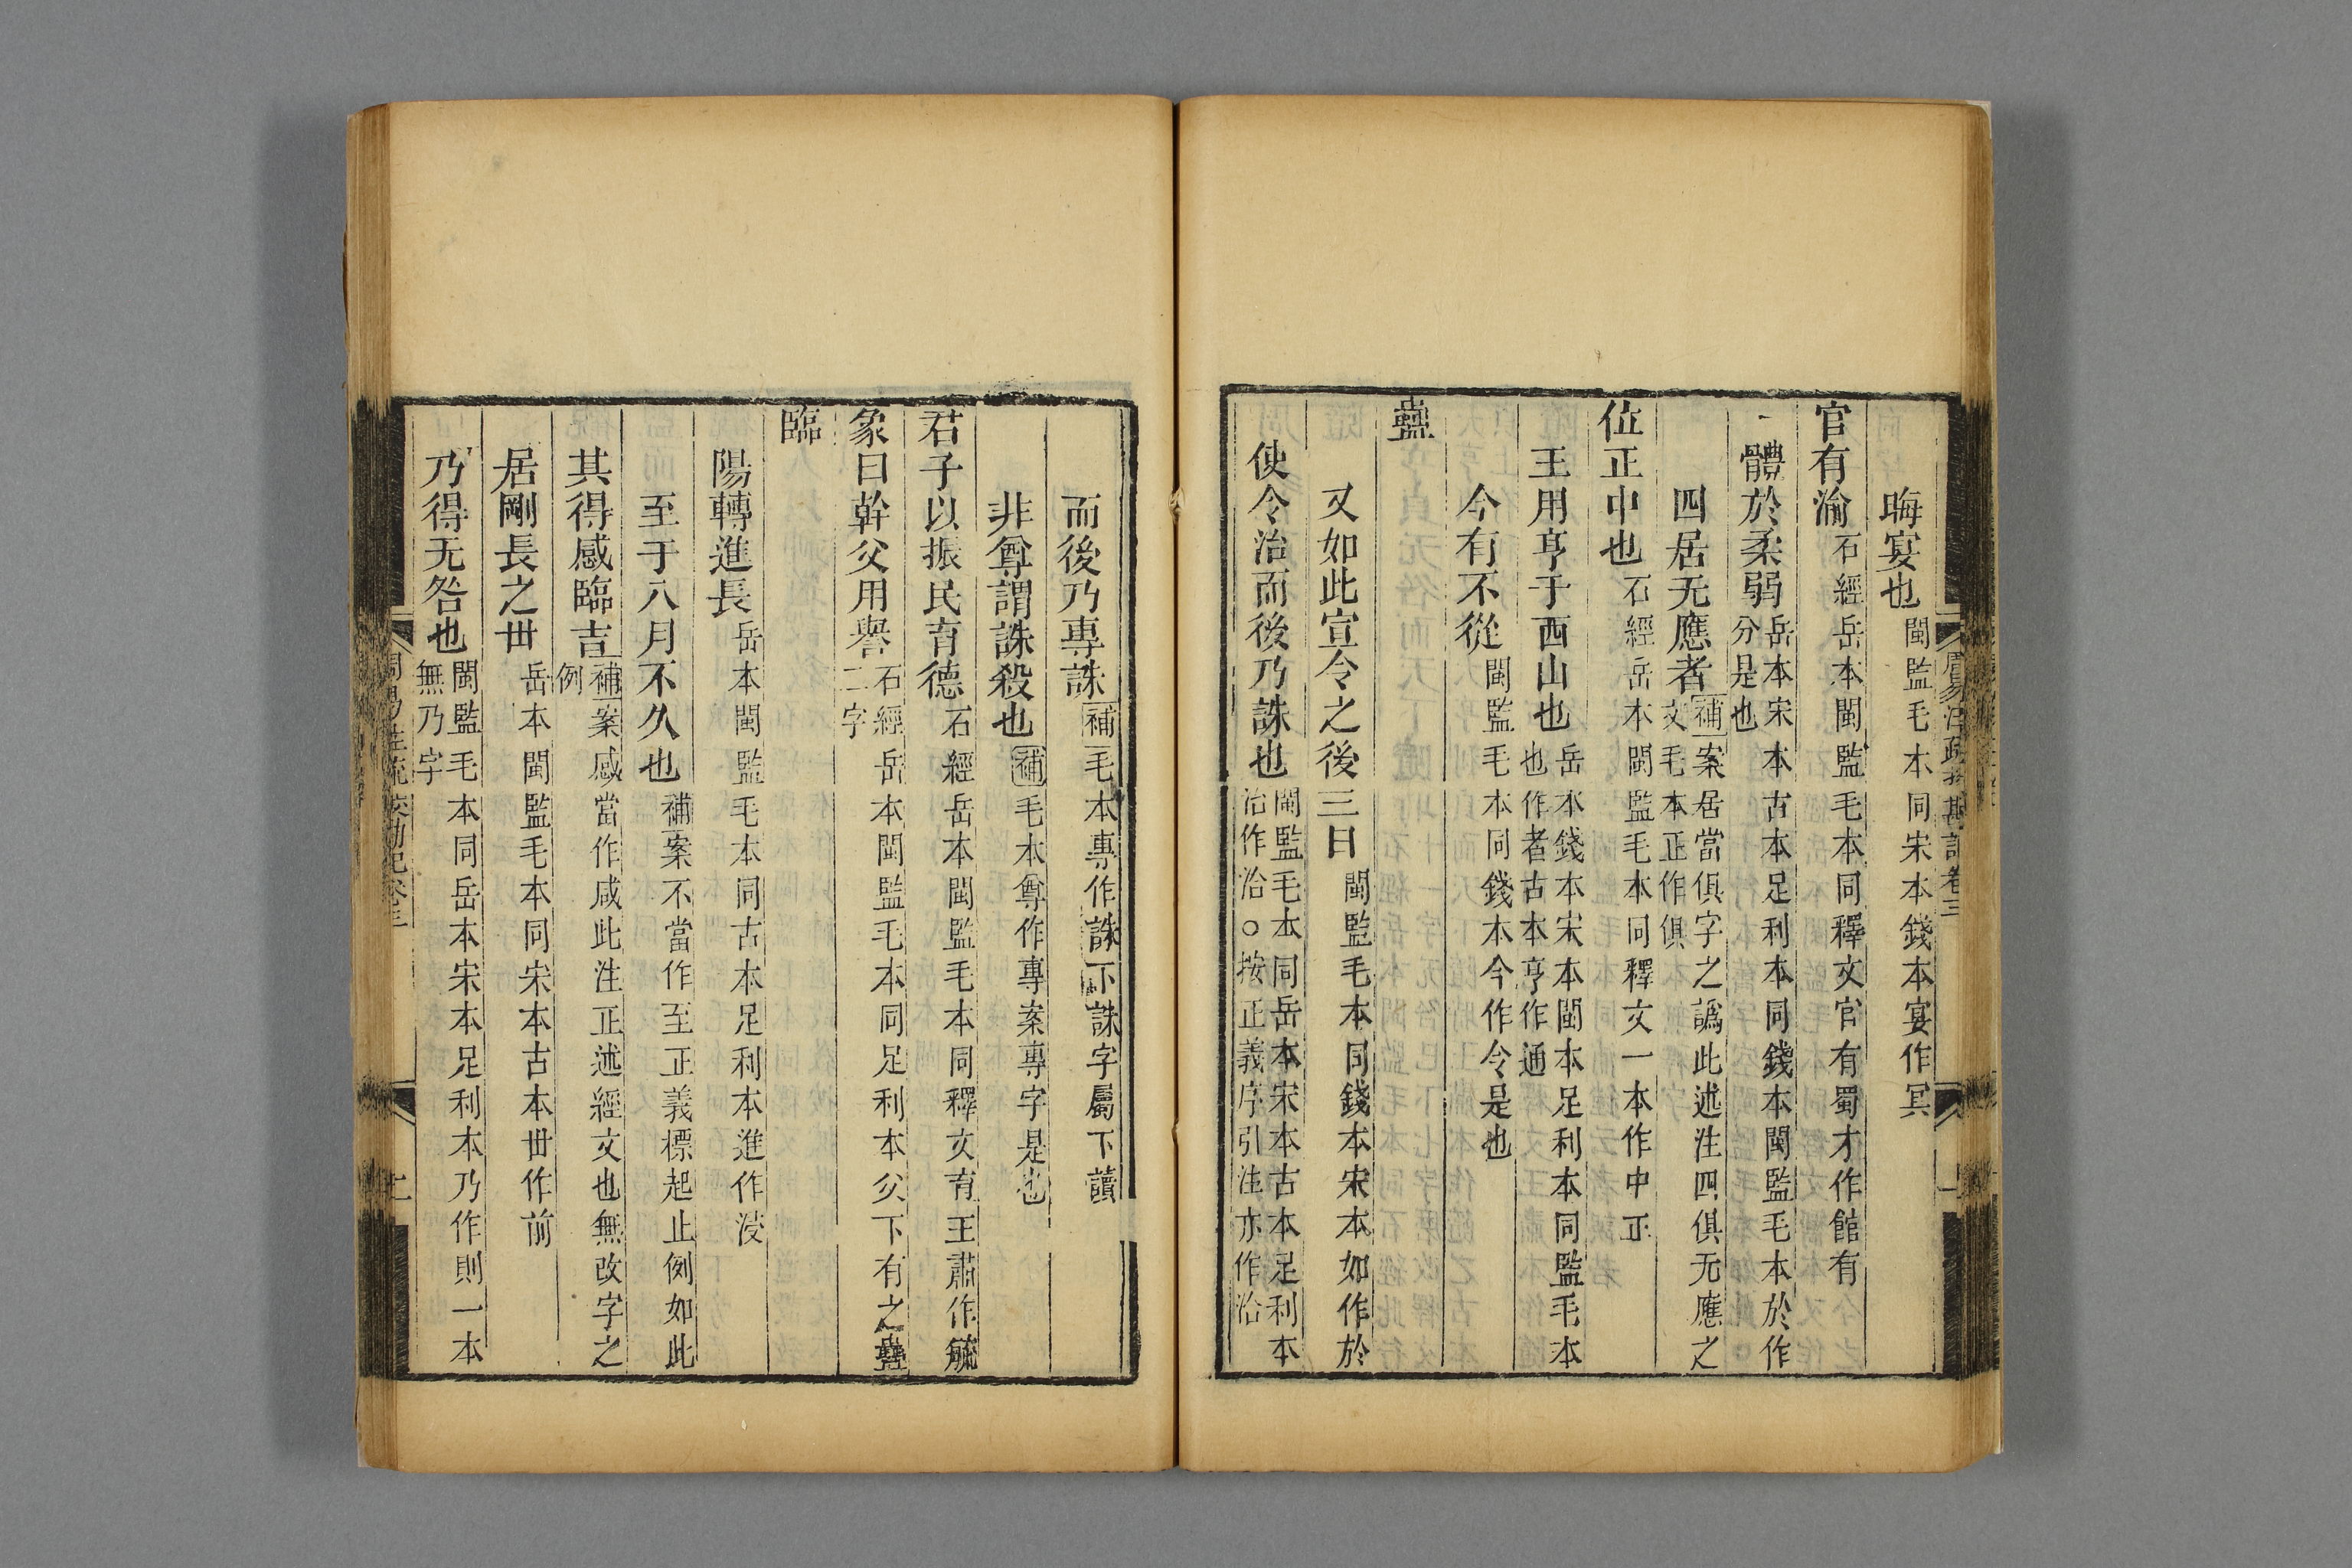 晦宴也閩監毛本同宋本錢本宴作冥
官有渝石經岳本閩監毛本同釋文官有蜀才作館有
體於柔弱岳本宋本古本足利本同錢本閩監毛本於作
分是也
四居无應者補案居當俱字之譌此述注四俱无應之
文毛本正作俱
位正中也石經岳本閩監毛本同釋文一本作中正
王用亨于西山也岳本錢本宋本閩本足利本同監毛本
也作者古本亨作通
今有不從閩監毛本同錢本今作令是也
蠱
又如此宣令之後三日閩監毛本同錢本宋本如作於
使令治而後乃誅也閩監毛本同岳本宋本古本足利本
治作洽○按正義序引注亦作洽
而後乃專誅補毛本專作誅下誅字屬下讀
非尊謂誅殺也補毛本尊作專案專字是也
君子以振民育德石經岳本閩監毛本同釋文育王肅作毓
象曰幹父用譽石經岳本閩監毛本同足利本父下有之蠱
二字
臨
陽轉進長岳本閩監毛本同古本足利本進作浸
至于八月不久也補案不當作至正義標起止例如此
其得感臨吉補案感當作咸此注正述經文也無改字之
例
居剛長之世岳本閩監毛本同宋本古本世作前
乃得无咎也閩監毛本同岳本宋本足利本乃作則一本
無乃字